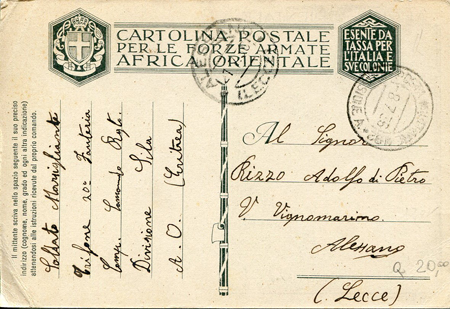 CARTOLINA POSTALE
PER LE FORZE ARMATE
AFRICA ORIENTALE
ESENTE DA
TASSA PER
L'ITALIA E
SUE COLONIE
Il mittente scriva nello spazio seguente il suo preciso
indirizzo (cognome, nome, grado ed ogni altra indicazione)
attenendosi alle istruzioni ricevute dal proprio comando.
Soldato
20° Fanteria
Comp. Comando Regto.
Divisione Sila
A. O. (Eritrea)
Al Signor
Rizzo Adolfo di Pietro
V. Vignomarino
Alessano
(Lecce)
Q 20,00
(LECCE)